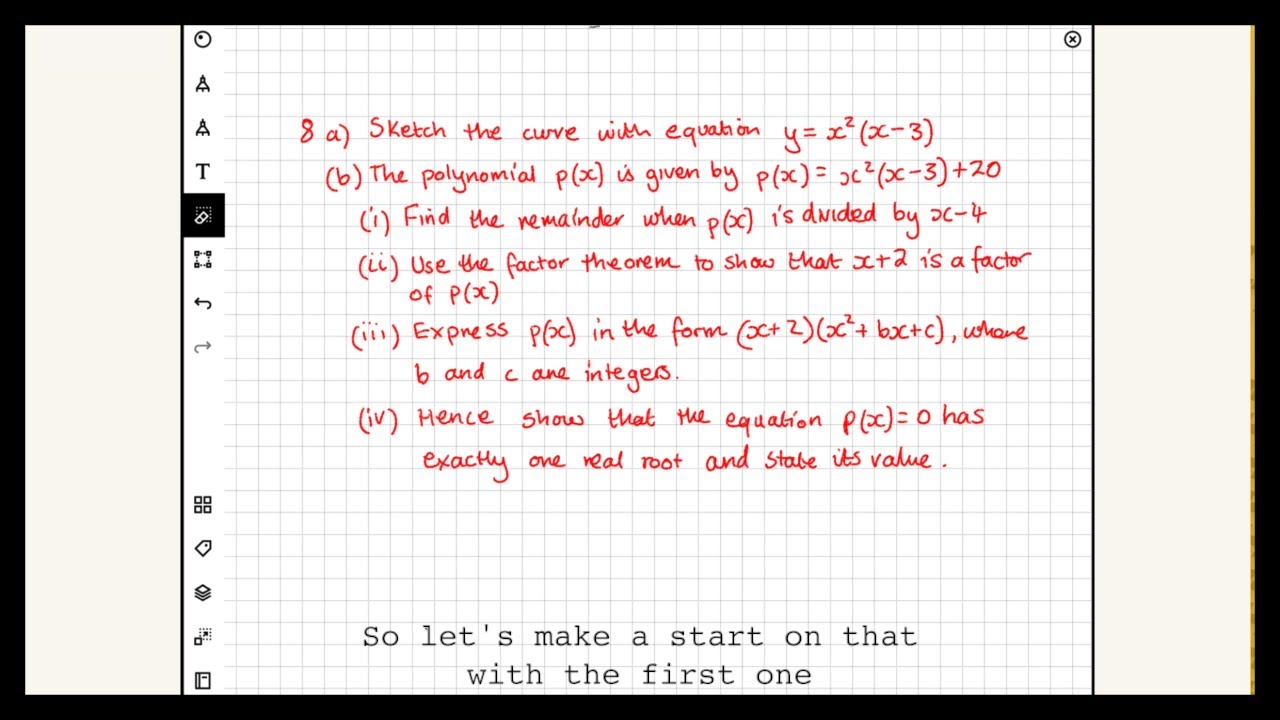 8 a) Sketch the curve with equation y = x²(x-3)
(b) The polynomial p(x) is given by p(x) = x²(x-3)+20
(i) Find the remainder when p(x) is divided by x-4
(ii) Use the factor theorem to show that x+2 is a factor
of p(x)
(iii) Express p(x) in the form (x+2)(x²+bx+c), where
b and c are integers.
(iv) Hence show that the equation p(x)=0 has
exactly one real root and state its value.
T
So let's make a start on that
with the first one